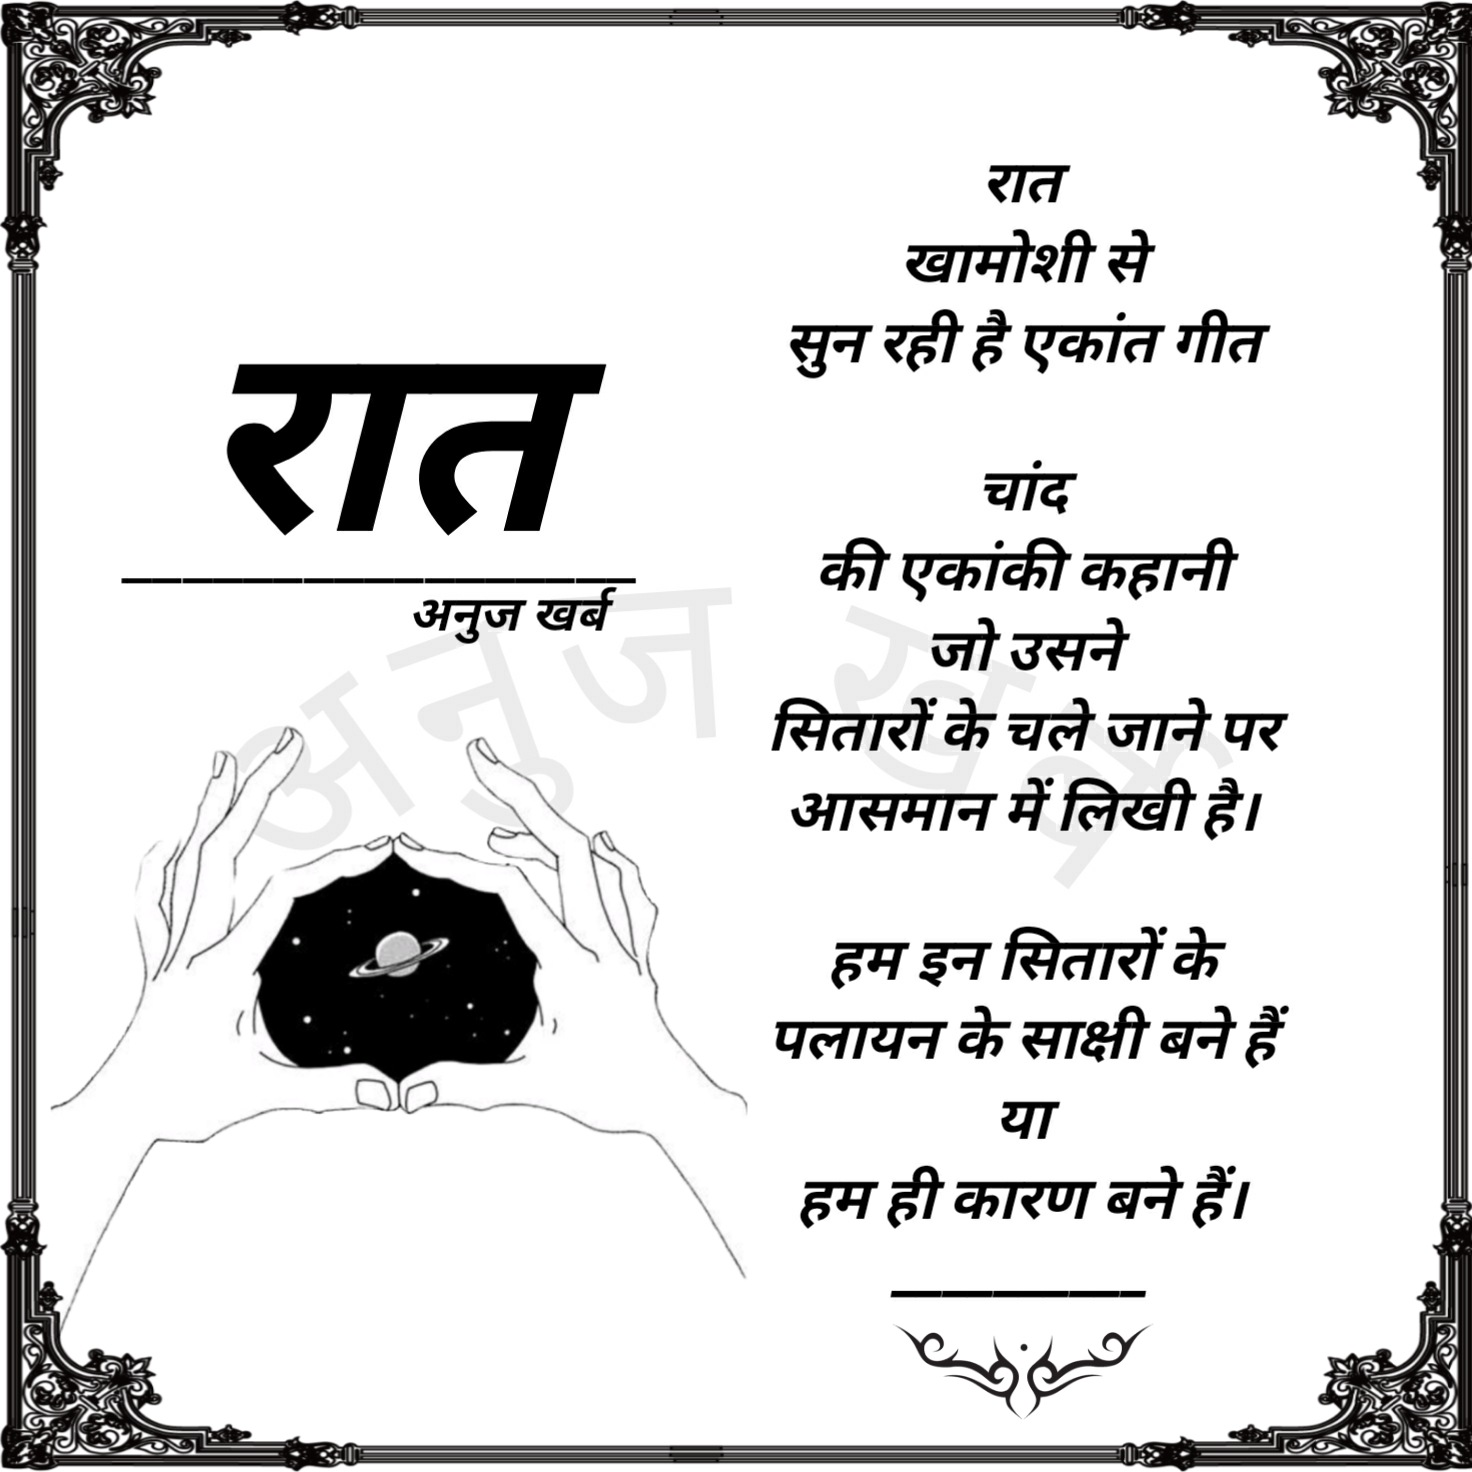 रात
अनुज खर्ब
रात
खामोशी से
सुन रही है एकांत गीत
चांद
की एकांकी कहानी
जो उसने
सितारों के चले जाने पर
आसमान में लिखी है।
हम इन सितारों के
पलायन के साक्षी बने हैं
या
हम ही कारण बने हैं।
अनुज खर्ब